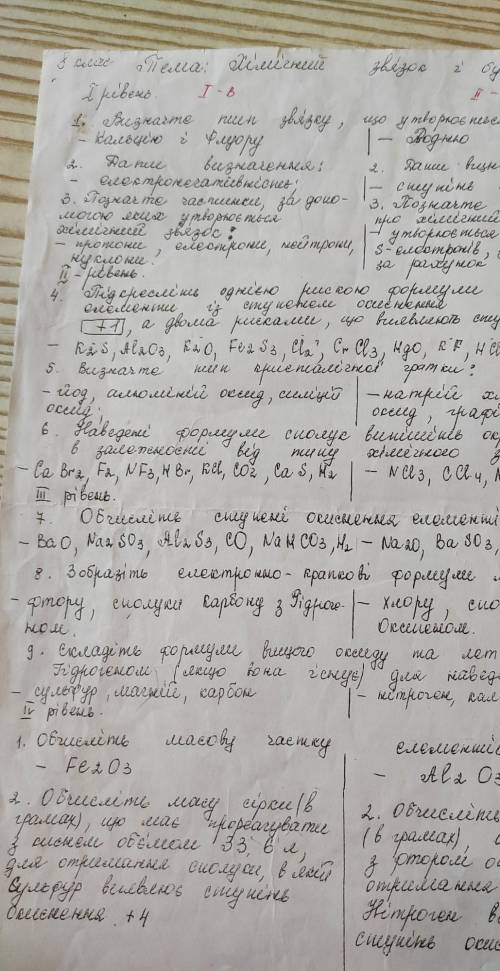 8 клас Тема: Хімічний звязок і бу
I рівень. I - в II -
1. Визначте тип звязку, що утворюється
- Кальцію і Флуору - Водню
2. Дати визначення: 2. Дати визн
- електронегативність; - ступінь
3. Позначте частинки, за допо- 3. Позначте
могою яких утворюється про хімічний
хімічний звязок? - утворюється
- протони, електрони, нейтрони, S-електронів,
нуклони. за рахунок
II - рівень.
4. Підкресліть однією рискою формули
елементи із ступенем окиснення
+1, а двома рисками, що виявляють сту
- K2S, Al2O3, K2O, Fe2S3, Cl2, CrCl3, HgO, KF, HCl
5. Визначте тип кристалічної гратки?
- йод, алюміній оксид, силіцій - натрій х
оксид; оксид, граф
6. Наведені формули сполук випишіть ок
в залежності від типу хімічного з
- CaBr2, F2, NF3, HBr, KCl, CO2, CaS, H2 - NCl3, CCl4, N
III рівень.
7. Обчисліть ступені окиснення елемент
- BaO, Na2SO3, Al2S3, CO, NaHCO3, H2 - Na2O, BaSO3,
8. Зобразіть електронно-крапкові формули м
- фтору, сполуки Карбону з Гідроге- - хлору, спо
ном. Оксигеном.
9. Складіть формули вищого оксиду та лет
Гідрогеном (якщо вона існує) для наведе
- сульфур, магній, карбон - нітроген, кал
IV рівень.
1. Обчисліть масову частку елементів
- Fe2O3 - Al2O3
2. Обчисліть масу сірки (в 2. Обчисліть
грамах), що має прореагувати (в грамах),
з киснем обємом 33,6 л, з фтором об
для отримання сполуки, в якій отримання
Сульфур виявляє ступінь Нітроген в
окиснення +4 ступінь окис